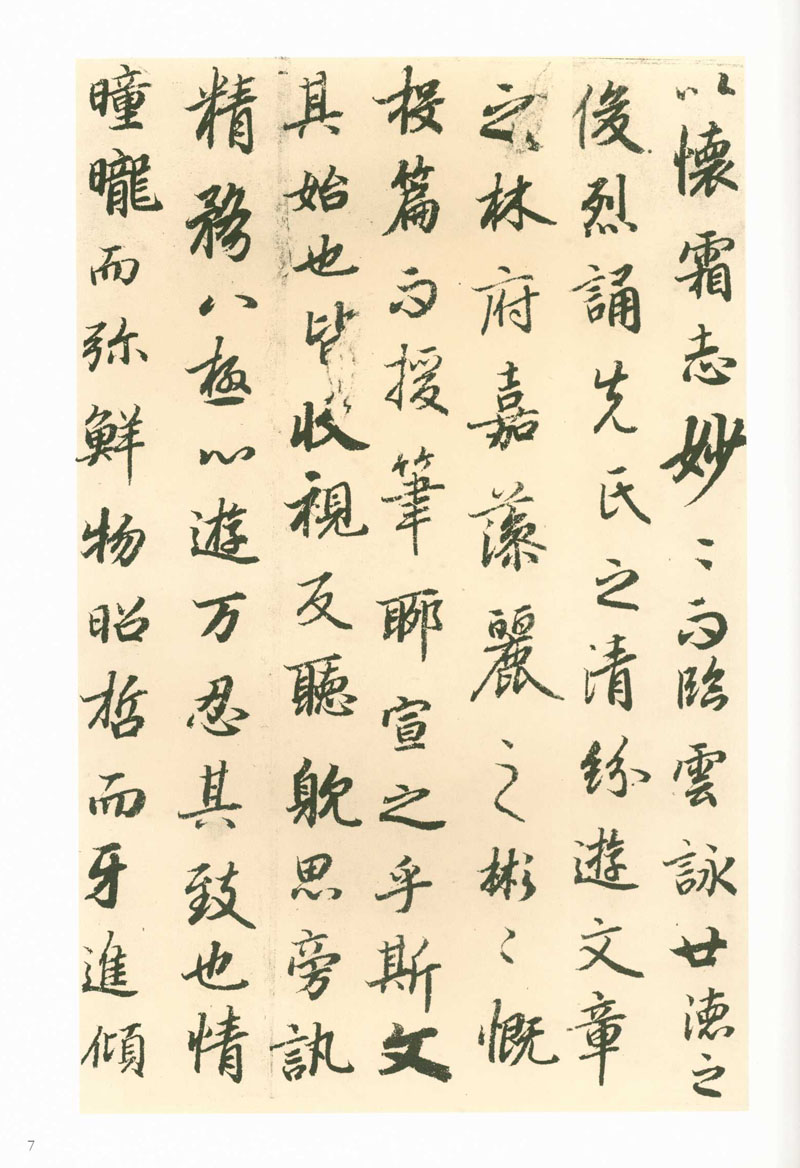 以懷霜志妙〻而臨雲詠廿德之
俊烈誦先氏之清紛遊文章
之林府嘉藻麗之彬〻慨
投篇而援筆聊宣之乎斯文
其始也皆收視反聽躭思旁訊
精務八極心遊万忍其致也情
曈曨而弥鮮物昭晢而牙進傾
7